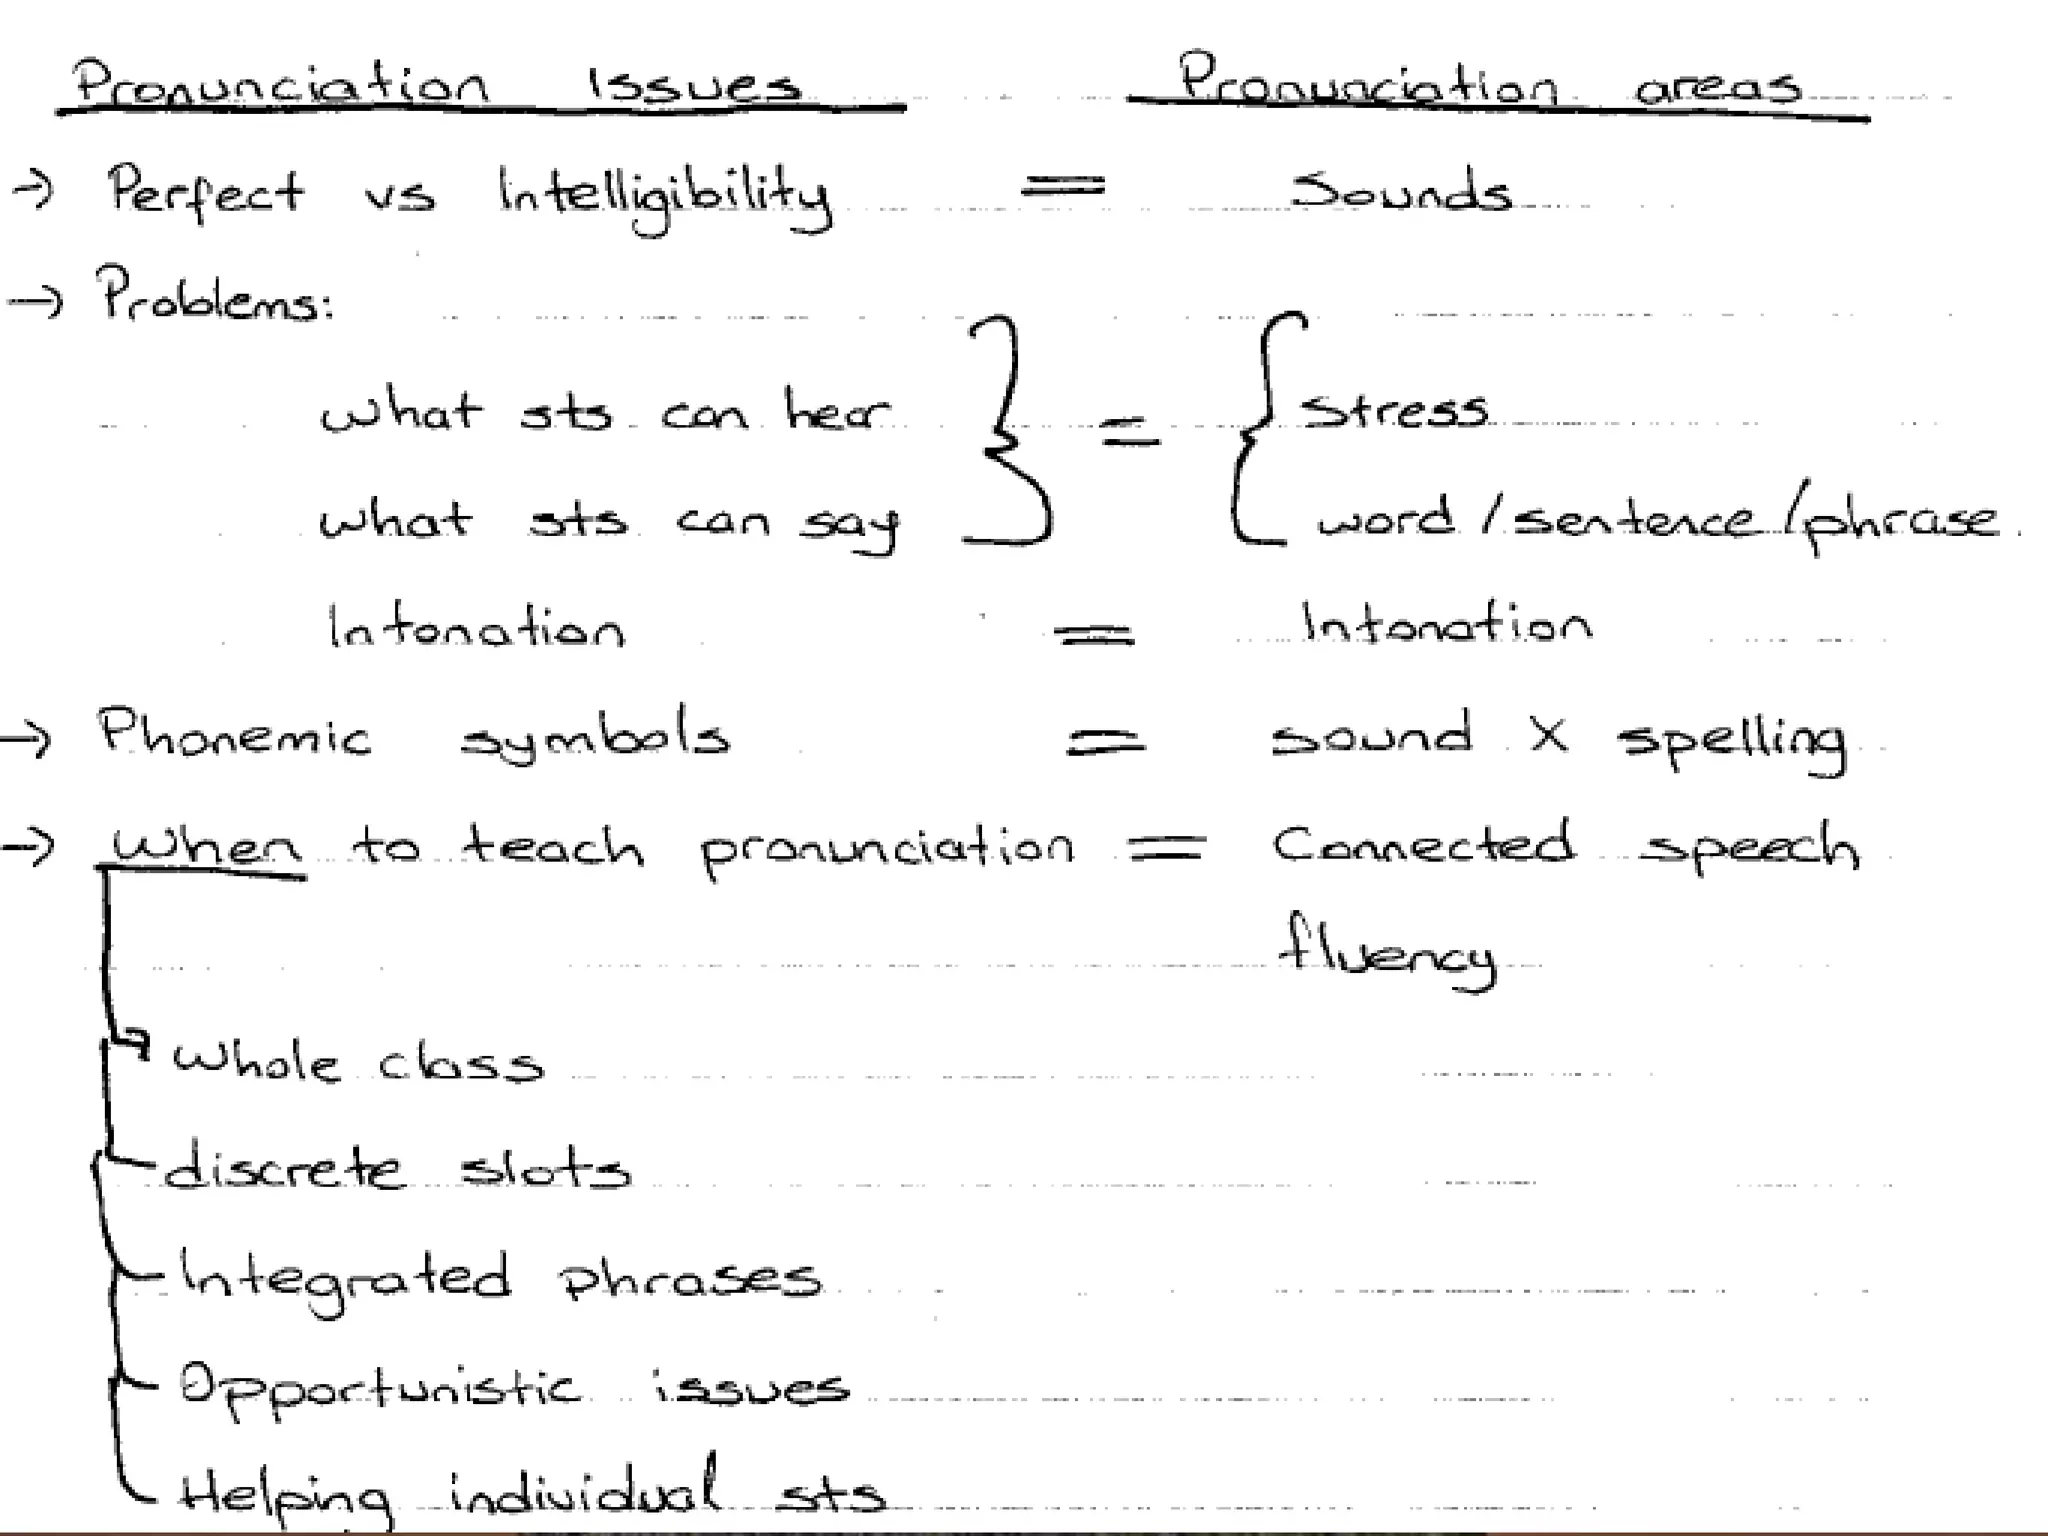 Pronunciation Issues Pronunciation areas
→ Perfect vs Intelligibility = Sounds
→ Problems:
what sts can hear } = { stress
what sts can say word / sentence / phrase
Intonation = Intonation
→ Phonemic symbols = sound X spelling
→ When to teach pronunciation = Connected speech
fluency
Whole class
discrete slots
Integrated phrases
Opportunistic issues
Helping individual sts